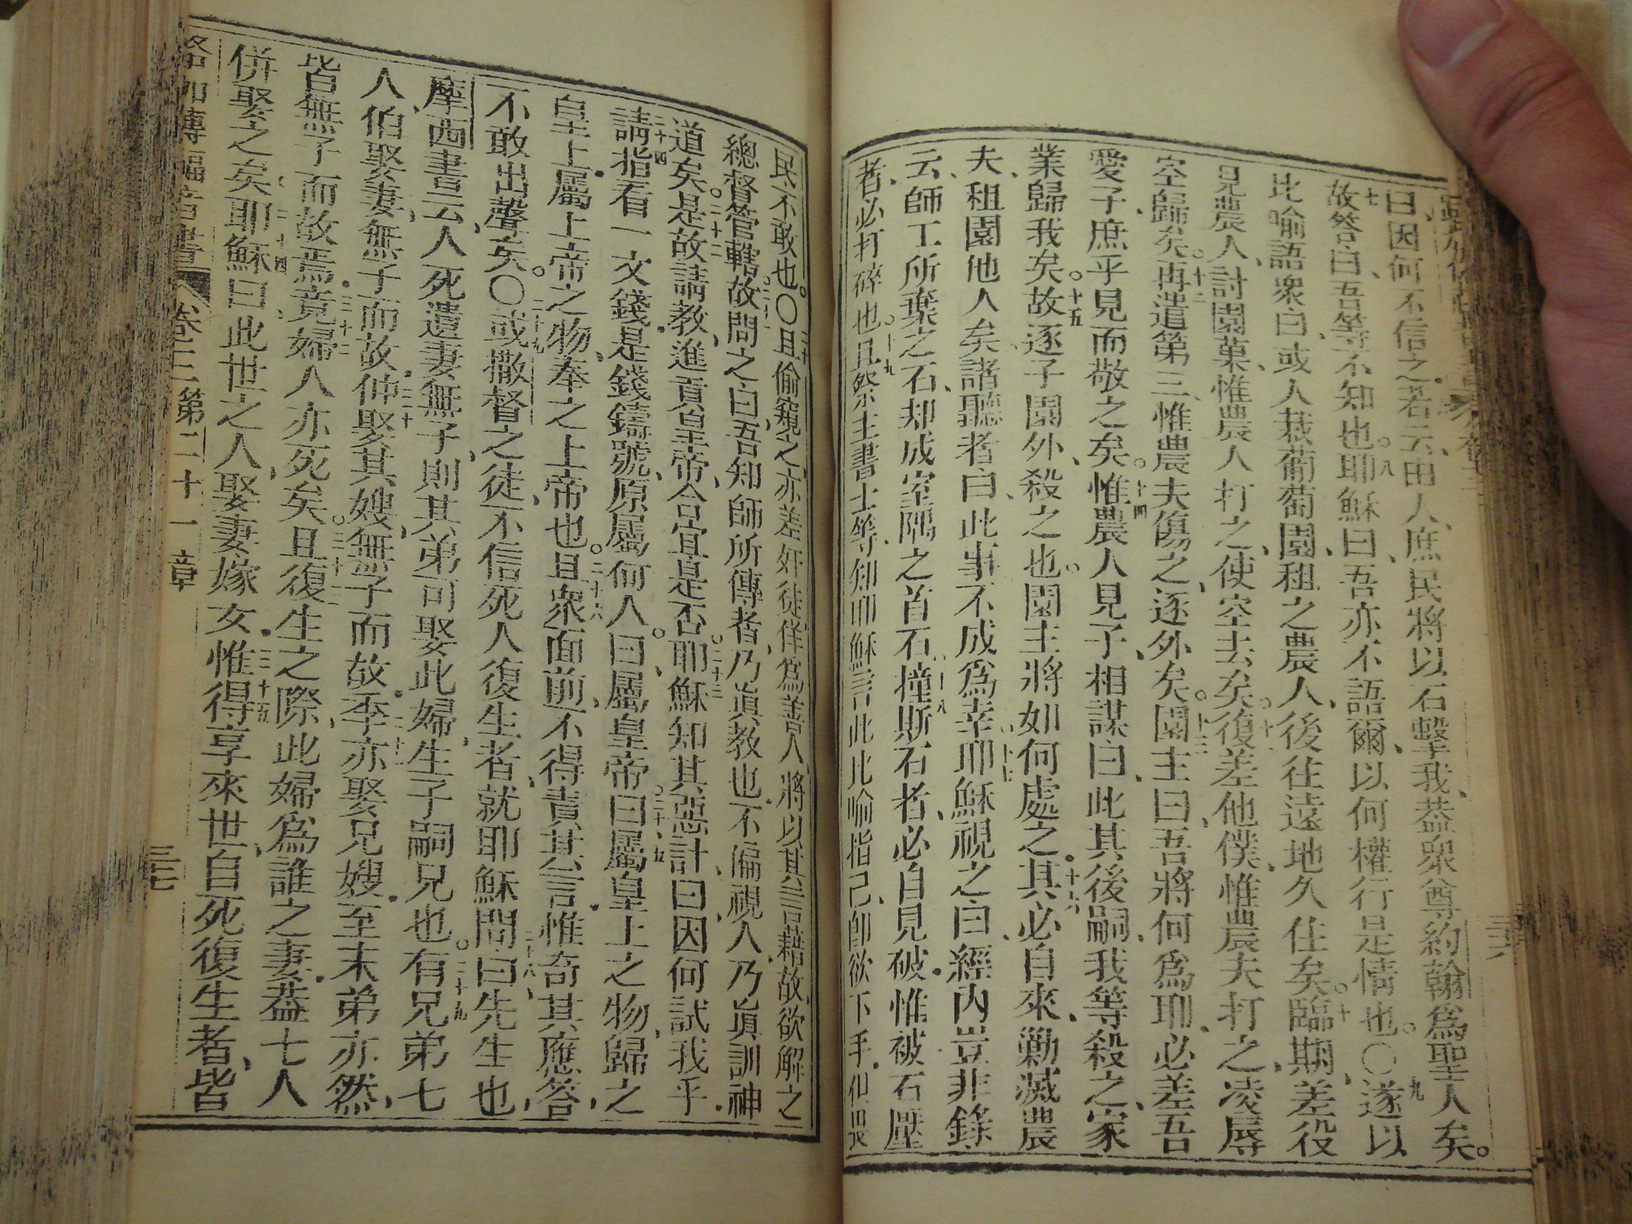 曰、因何不信之、若云由人、庶民將以石擊我、葢衆尊約翰爲聖人矣。
七故答曰、吾等不知也。八耶穌曰、吾亦不語爾、以何權行是情也。〇九遂以
比喻語衆曰、或人栽葡萄園、租之農人、後往遠地久住矣。十臨期、差役
見農人、討園菓、惟農人打之、使空去矣。十一復差他僕、惟農夫打之、凌辱
空歸矣。十二再遣第三、惟農夫傷之、逐外矣。十三園主曰、吾將何爲耶、必差吾
愛子、庶乎見而敬之矣。十四惟農人見子、相謀曰、此其後嗣、我等殺之、家
業歸我矣。十五故逐子園外、殺之也。園主將如何處之。十六其必自來、勦滅農
夫、租園他人矣、諸聽者曰、此事不成爲幸。十七耶穌視之曰、經内豈非錄
云、師工所棄之石、却成室隅之首石。十八撞斯石者、必自見破、惟被石壓
者、必打碎也。十九且祭主書士等、知耶穌言此比喻指己、卽欲下手、但畏
民不敢也。〇二十且偷窺之、亦差奸徒佯爲善人、將以其言藉故、欲解之
總督管轄。二十一故問之曰、吾知師所傳者、乃眞教也、不偏視人、乃眞訓神
道矣。二十二是故請教、進貢皇帝、合宜是否。二十三耶穌知其惡計、曰、因何試我乎。
二十四請指看一文錢、是錢鑄號、原屬何人。曰、屬皇帝。二十五曰、屬皇上之物、歸之
皇上、屬上帝之物、奉之上帝也。二十六且衆面前、不得責其言、惟奇其應答、
不敢出聲矣。〇二十七或撒督之徒、不信死人復生者、就耶穌問二十八曰、先生也、
摩西書云、人死遺妻無子、則其弟可娶此婦、生子嗣兄也。二十九有兄弟七
人、伯娶妻、無子而故。三十仲娶其嫂、無子而故。三十一季亦娶兄嫂、至末弟亦然、
皆無子而故焉。三十二竟婦人亦死矣。三十三且復生之際、此婦爲誰之妻、葢七人
併娶之矣。三十四耶穌曰、此世之人、娶妻嫁女。三十五惟得享來世、自死復生者、皆
路加傳福音書 卷三 第二十一章 三七
三六